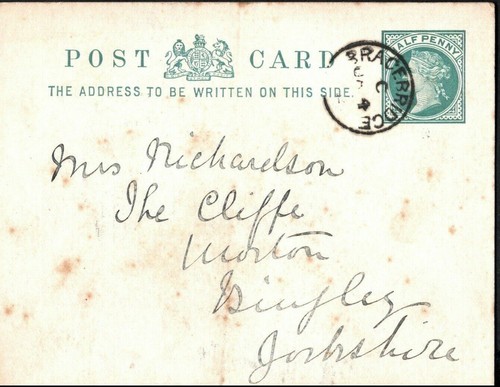 POST CARD
HALF PENNY
BRACEBRIDGE
C
THE ADDRESS TO BE WRITTEN ON THIS SIDE.
Mrs Richardson
The Cliffe
Morton
Bingley
Yorkshire